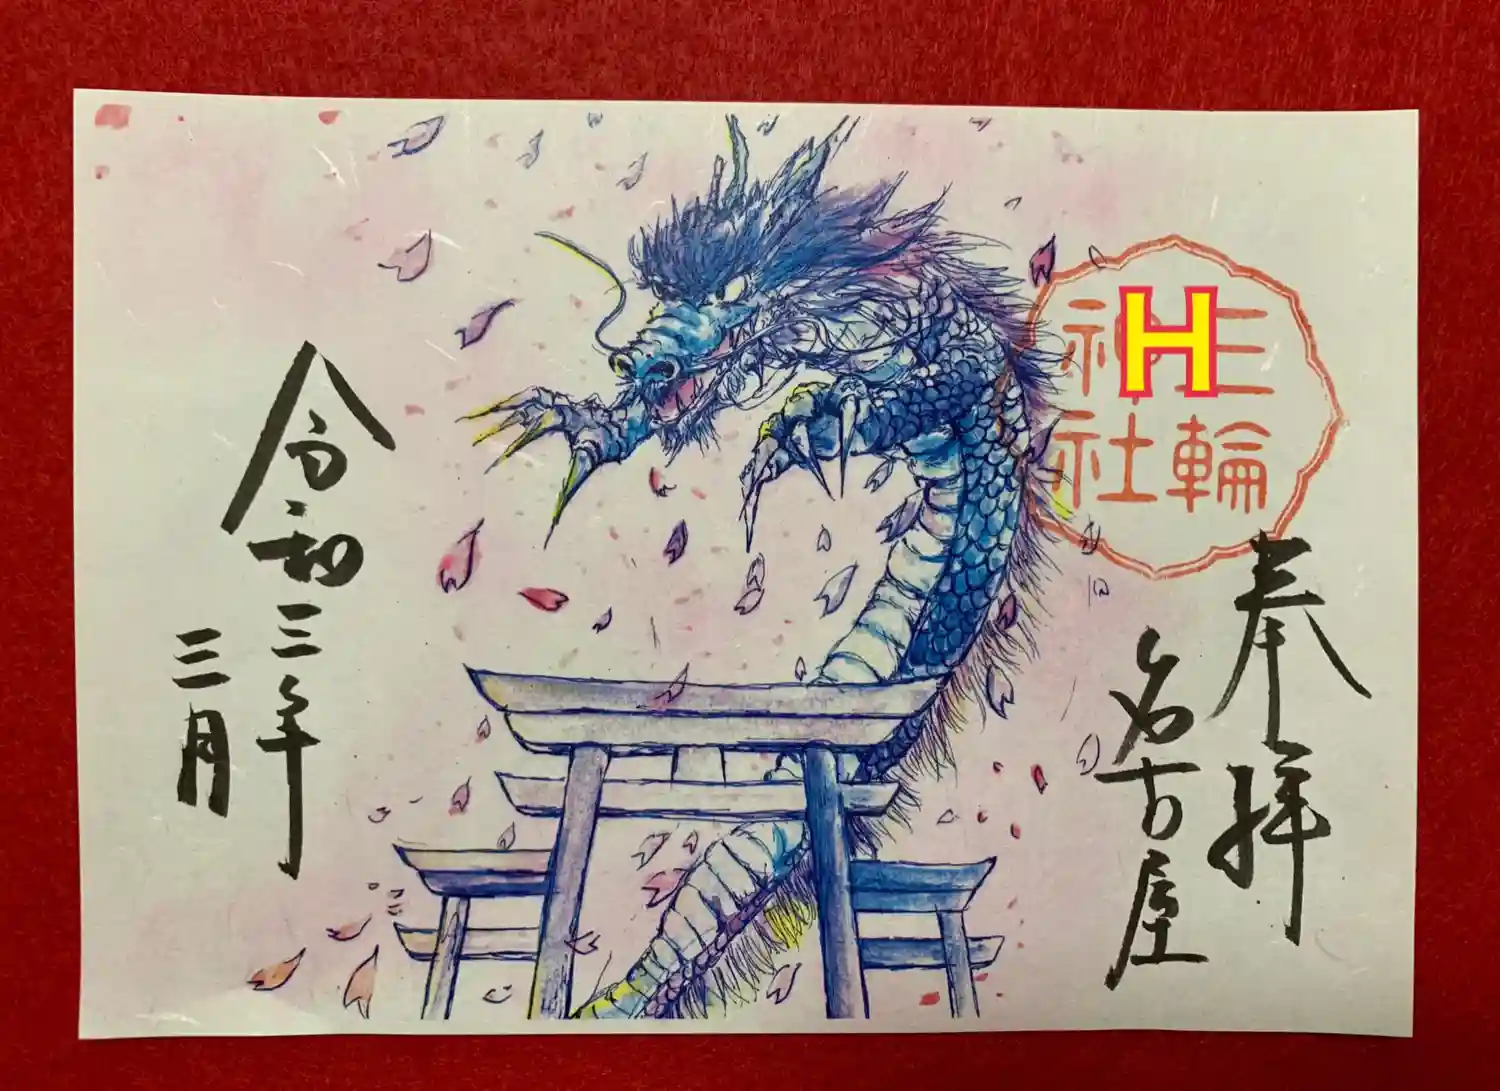 三輪
神社
H
奉拝
名古屋
令和三年
三月